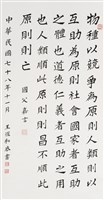 物種以競爭為原則人類則以
互助為原則社會國家者
互助之體也道德仁義者互助之用
也人類順此原則則昌不順此
原則則亡 國父嘉言
中華民國七十八年十一月 恭書